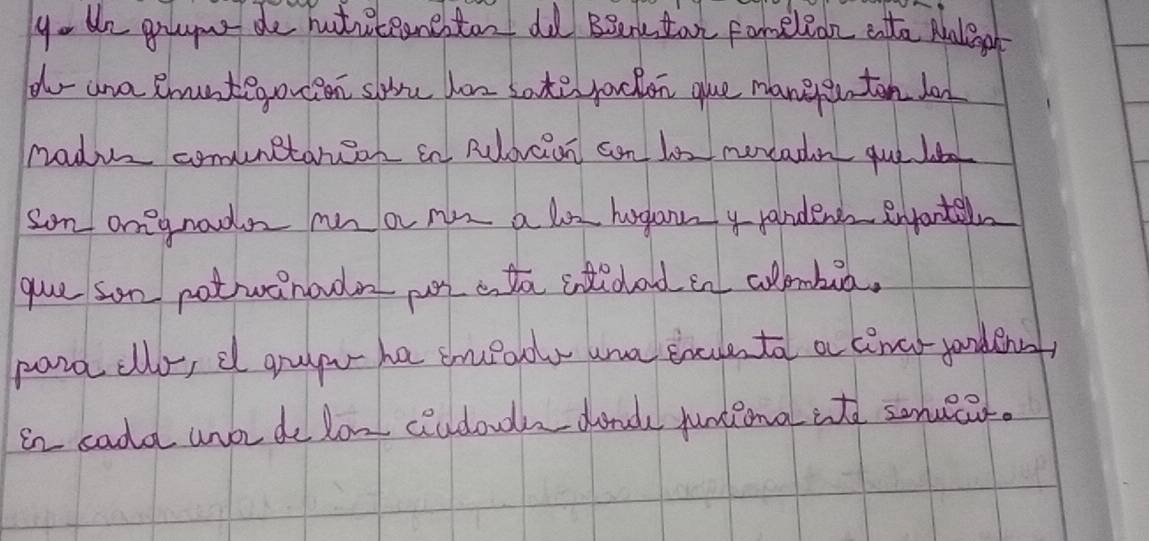 4. Un grupo de nutricionistas del Bienestar Familiar esta realizan
do una investigación sobre las satisfacción que manifiestan las
madres comunitarias en relación con los mercados que les
son asignados mes a mes a los hogares y jardines infantiles
que son patrocinados por esta entidad en colombia.
para ello, el grupo ha enviado una encuesta a cinco jardines,
en cada una de las ciudades donde funciona este servicio.